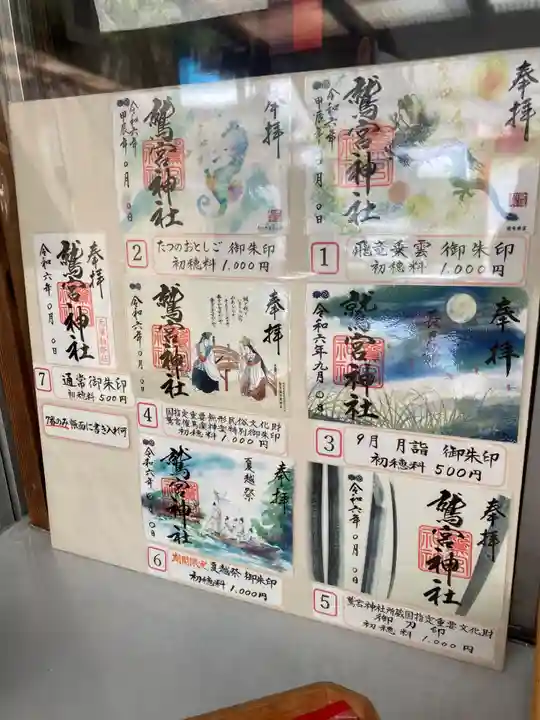 奉拝
鷲宮神社
令和六年
甲辰年〇月〇日
1 飛竜乗雲 御朱印
初穂料 1,000円
奉拝
鷲宮神社
令和六年
甲辰年〇月〇日
2 たつのおとしご 御朱印
初穂料 1,000円
奉拝
鷲宮神社
令和六年九月〇日
3 9月 月詣 御朱印
初穂料 500円
奉拝
鷲宮神社
令和六年〇月〇日
4 国指定重要無形民俗文化財
鷲宮催馬楽神楽特別御朱印
初穂料 1,000円
奉拝
鷲宮神社
令和六年〇月〇日
5 鷲宮神社所蔵国指定重要文化財
御刀印
初穂料 1,000円
奉拝
夏越祭
鷲宮神社
令和六年〇月〇日
6 期間限定 夏越祭 御朱印
初穂料 1,000円
奉拝
鷲宮神社
令和六年〇月〇日
7 通常御朱印
初穂料 500円
7番のみ帳面に書き入れ可